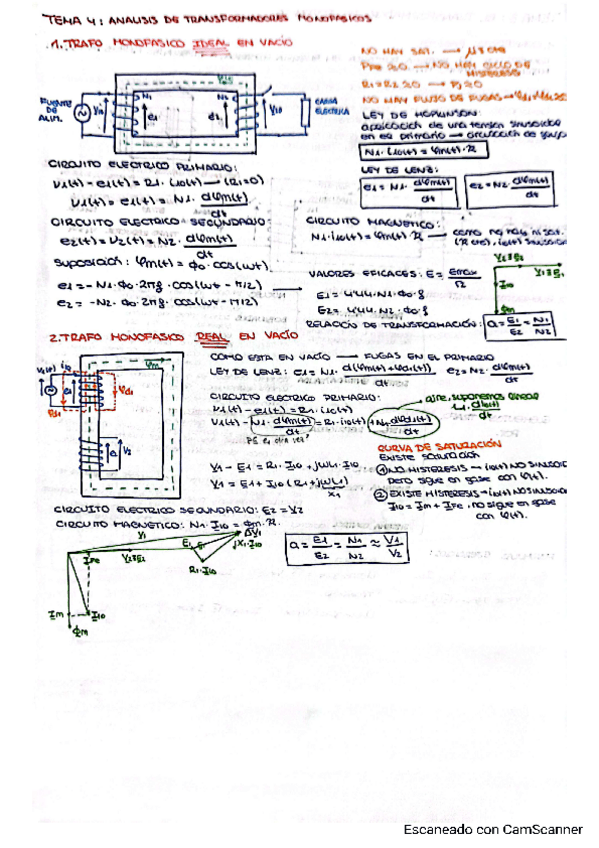 TEMA 4: ANALISIS DE TRANSFORMADORES MONOFASICOS
1. TRAFO MONOFASICO IDEAL EN VACIO
NO HAY SAT. → μ cte
→ NO HAY CICLO DE HISTERESIS
R1=R2≈0 → Pj≈0
NO HAY FLUJO DE FUGAS →
FUENTE DE ALIM.
N1
N2
e1
e2
CARGA ELECTRICA
LEY DE HOPKINSON:
aplicacion de una tension sinusoidal
en el primario → circulacion de flujo
N1·i10(t) = φm(t)·R
LEY DE LENZ:
e1 = N1· dφm(t)/dt
e2 = N2· dφm(t)/dt
CIRCUITO ELECTRICO PRIMARIO:
v1(t) - e1(t) = R1·i10(t) → (R1=0)
v1(t) = e1(t) = N1· dφm(t)/dt
CIRCUITO ELECTRICO SECUNDARIO:
e2(t) = v2(t) = N2· dφm(t)/dt
CIRCUITO MAGNETICO:
N1·i10(t) = φm(t)·R → como no hay ni sat.
(R cte), i10(t) sinusoidal
suposicion: φm(t) = φ0·cos(ωt)
e1 = -N1·φ0·2πf·cos(ωt - π/2)
e2 = -N2·φ0·2πf·cos(ωt - π/2)
VALORES EFICACES: E = Emax/√2
E1 = 4.44·N1·φ0·f
E2 = 4.44·N2·φ0·f
RELACIÓN DE TRANSFORMACIÓN: a = E1/E2 = N1/N2
V2=E2
V1=E1
I10
φm
2. TRAFO MONOFASICO REAL EN VACÍO
COMO ESTA EN VACÍO → FUGAS EN EL PRIMARIO
LEY DE LENZ: e1 = N1· d(φm(t)+φd1(t))/dt e2 = N2· dφm(t)/dt
CIRCUITO ELECTRICO PRIMARIO:
v1(t) - e1(t) = R1·i10(t)
v1(t) - N1· dφm(t)/dt = R1·i10(t) + N1· dφd1(t)/dt
aire, suponemos lineal
L1· di10(t)/dt
V1 - E1 = R1·I10 + jωL1·I10
V1 = E1 + I10(R1 + jωL1)
X1
CURVA DE SATURACIÓN
EXISTE SATURACIÓN
① NO HISTERESIS → i10(t) NO SINUSOIDAL
pero sigue en fase con φ(t).
② EXISTE HISTERESIS → i10(t) NO SINUSOIDAL
I10 = Im + IFe, no sigue en fase
con φ(t).
CIRCUITO ELECTRICO SECUNDARIO: E2 = V2
CIRCUITO MAGNETICO: N1·I10 = φm·R
a = E1/E2 = N1/N2 ≈ V1/V2
V1
E1
ΔV1
jX1·I10
R1·I10
V2=E2
IFe
Im
I10
φm
Escaneado con CamScanner